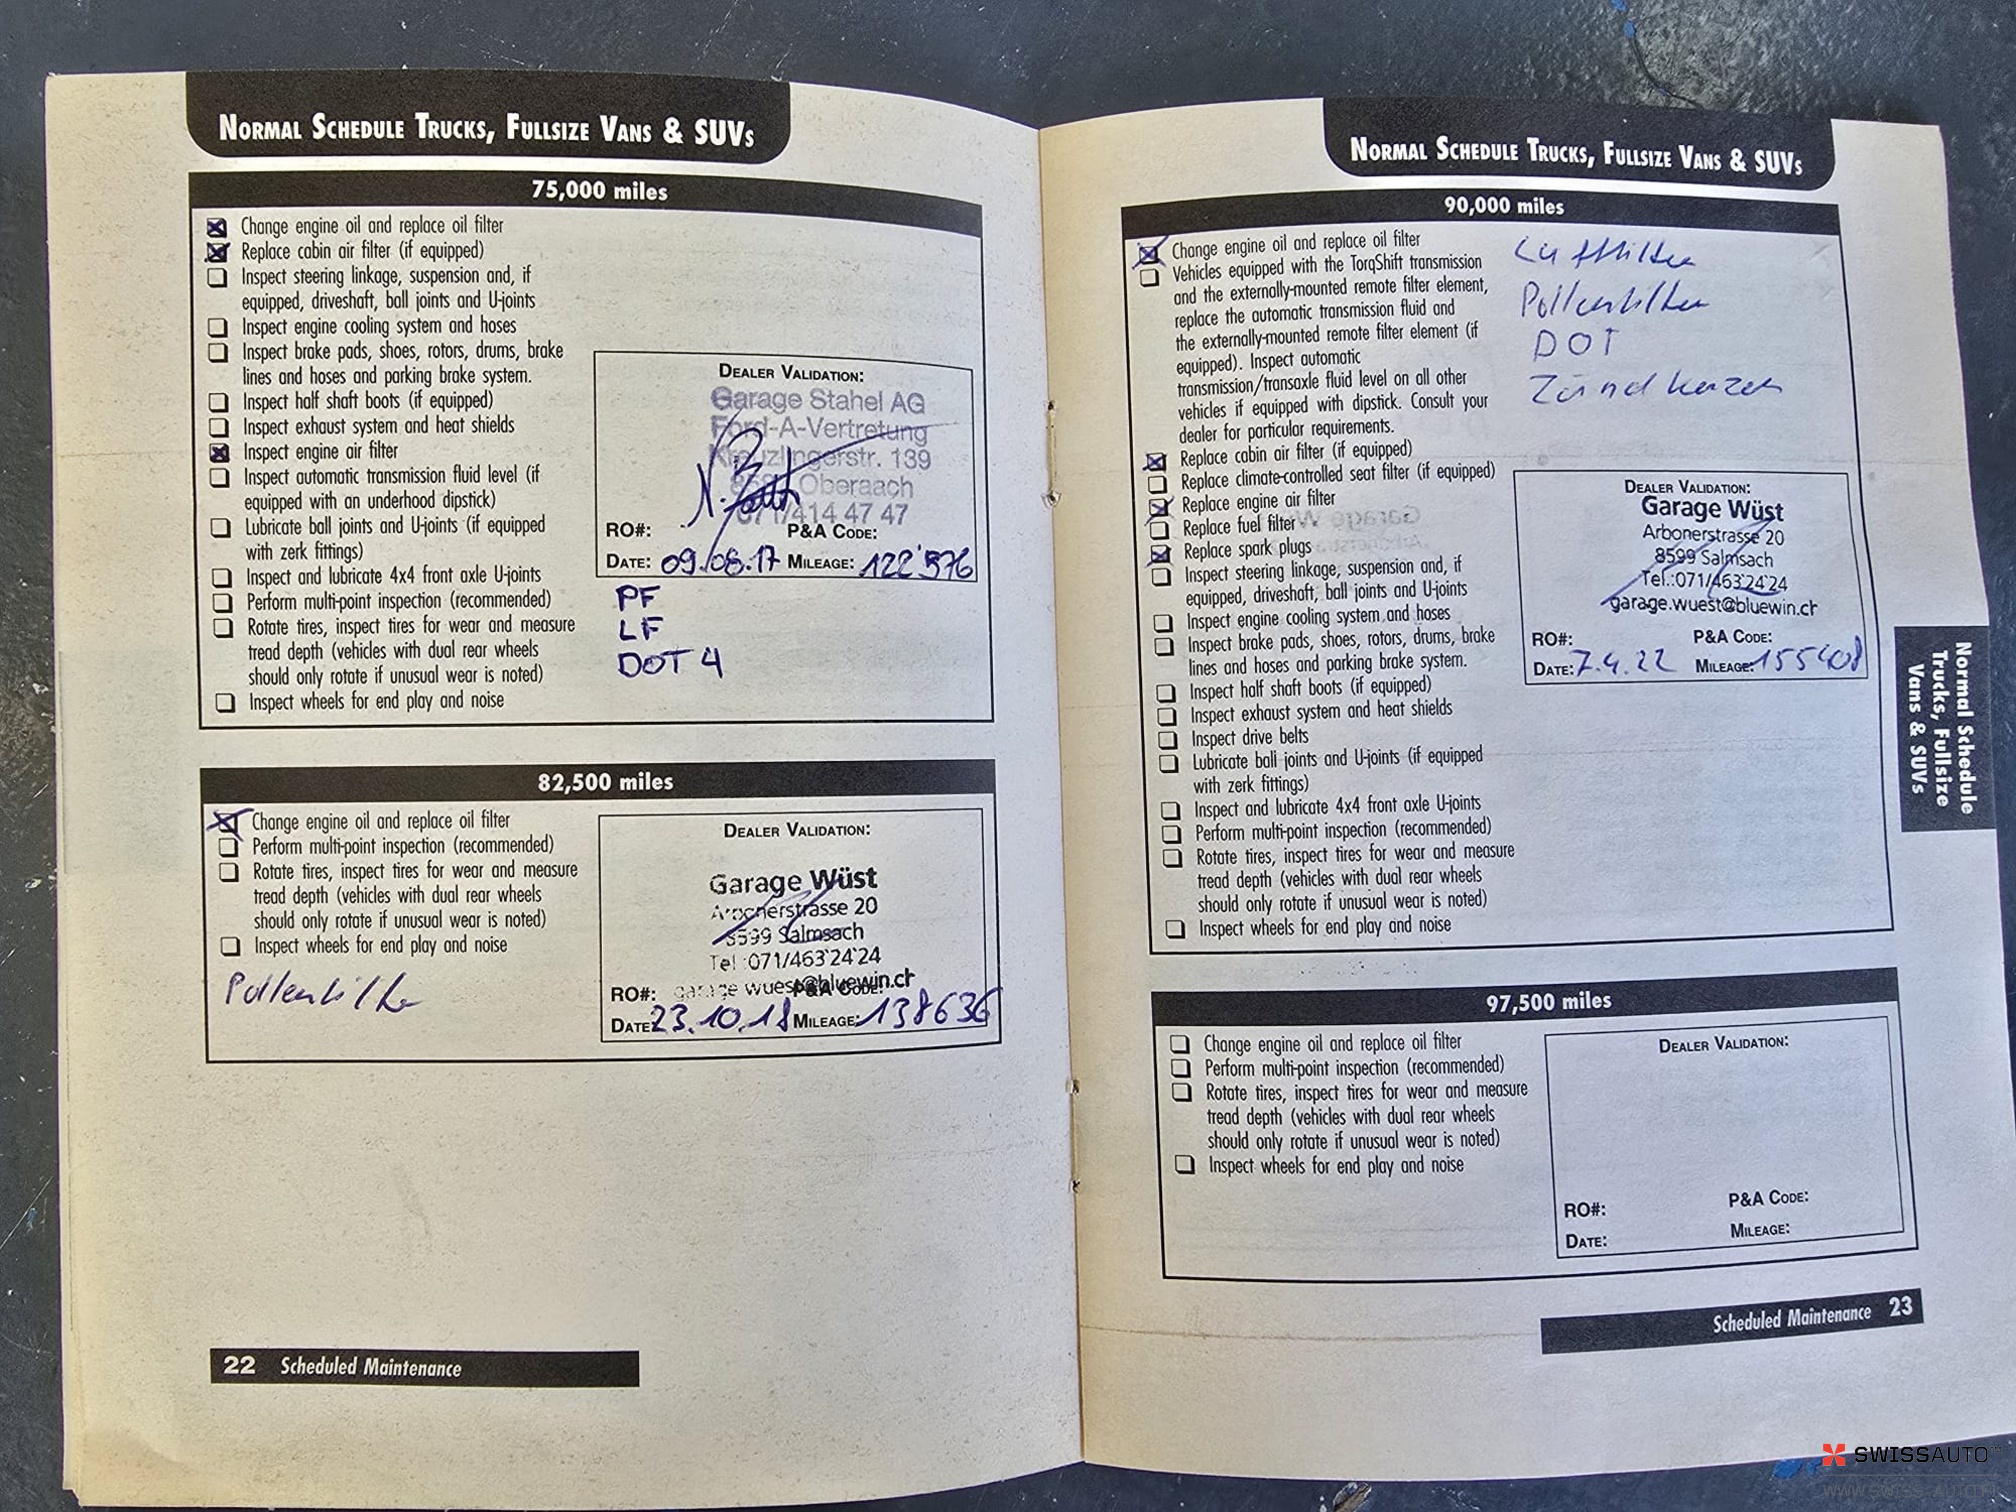 NORMAL SCHEDULE TRUCKS, FULLSIZE VANS & SUVS
75,000 miles
Change engine oil and replace oil filter
Replace cabin air filter (if equipped)
Inspect steering linkage, suspension and, if
equipped, driveshaft, ball joints and U-joints
Inspect engine cooling system and hoses
Inspect brake pads, shoes, rotors, drums, brake
lines and hoses and parking brake system.
Inspect half shaft boots (if equipped)
Inspect exhaust system and heat shields
Inspect engine air filter
Inspect automatic transmission fluid level (if
equipped with an underhood dipstick)
Lubricate ball joints and U-joints (if equipped
with zerk fittings)
Inspect and lubricate 4x4 front axle U-joints
Perform multi-point inspection (recommended)
Rotate tires, inspect tires for wear and measure
tread depth (vehicles with dual rear wheels
should only rotate if unusual wear is noted)
Inspect wheels for end play and noise
DEALER VALIDATION:
Garage Stahel AG
Ford-A-Vertretung
Kreuzlingerstr. 139
Oberaach
071/414 47 47
RO#: P&A CODE:
DATE: 09.08.17 MILEAGE: 122'576
PF
LF
DOT 4
82,500 miles
Change engine oil and replace oil filter
Perform multi-point inspection (recommended)
Rotate tires, inspect tires for wear and measure
tread depth (vehicles with dual rear wheels
should only rotate if unusual wear is noted)
Inspect wheels for end play and noise
Pollenfilter
DEALER VALIDATION:
Garage Wüst
Arbonerstrasse 20
8599 Salmsach
Tel.:071/463'24'24
garage.wuest@bluewin.ch
RO#: P&A CODE:
DATE: 23.10.18 MILEAGE: 138636
22 Scheduled Maintenance
NORMAL SCHEDULE TRUCKS, FULLSIZE VANS & SUVS
90,000 miles
Change engine oil and replace oil filter
Vehicles equipped with the TorqShift transmission
and the externally-mounted remote filter element,
replace the automatic transmission fluid and
the externally-mounted remote filter element (if
equipped). Inspect automatic
transmission/transaxle fluid level on all other
vehicles if equipped with dipstick. Consult your
dealer for particular requirements.
Replace cabin air filter (if equipped)
Replace climate-controlled seat filter (if equipped)
Replace engine air filter
Replace fuel filter
Replace spark plugs
Inspect steering linkage, suspension and, if
equipped, driveshaft, ball joints and U-joints
Inspect engine cooling system and hoses
Inspect brake pads, shoes, rotors, drums, brake
lines and hoses and parking brake system.
Inspect half shaft boots (if equipped)
Inspect exhaust system and heat shields
Inspect drive belts
Lubricate ball joints and U-joints (if equipped
with zerk fittings)
Inspect and lubricate 4x4 front axle U-joints
Perform multi-point inspection (recommended)
Rotate tires, inspect tires for wear and measure
tread depth (vehicles with dual rear wheels
should only rotate if unusual wear is noted)
Inspect wheels for end play and noise
Luftfilter
Pollenfilter
DOT
Zündkerzen
DEALER VALIDATION:
Garage Wüst
Arbonerstrasse 20
8599 Salmsach
Tel.:071/463'24'24
garage.wuest@bluewin.ch
RO#: P&A CODE:
DATE: 7.4.22 MILEAGE: 155408
97,500 miles
Change engine oil and replace oil filter
Perform multi-point inspection (recommended)
Rotate tires, inspect tires for wear and measure
tread depth (vehicles with dual rear wheels
should only rotate if unusual wear is noted)
Inspect wheels for end play and noise
DEALER VALIDATION:
RO#: P&A CODE:
DATE: MILEAGE:
Scheduled Maintenance 23
Normal Schedule
Trucks, Fullsize
Vans & SUVs
SWISSAUTO